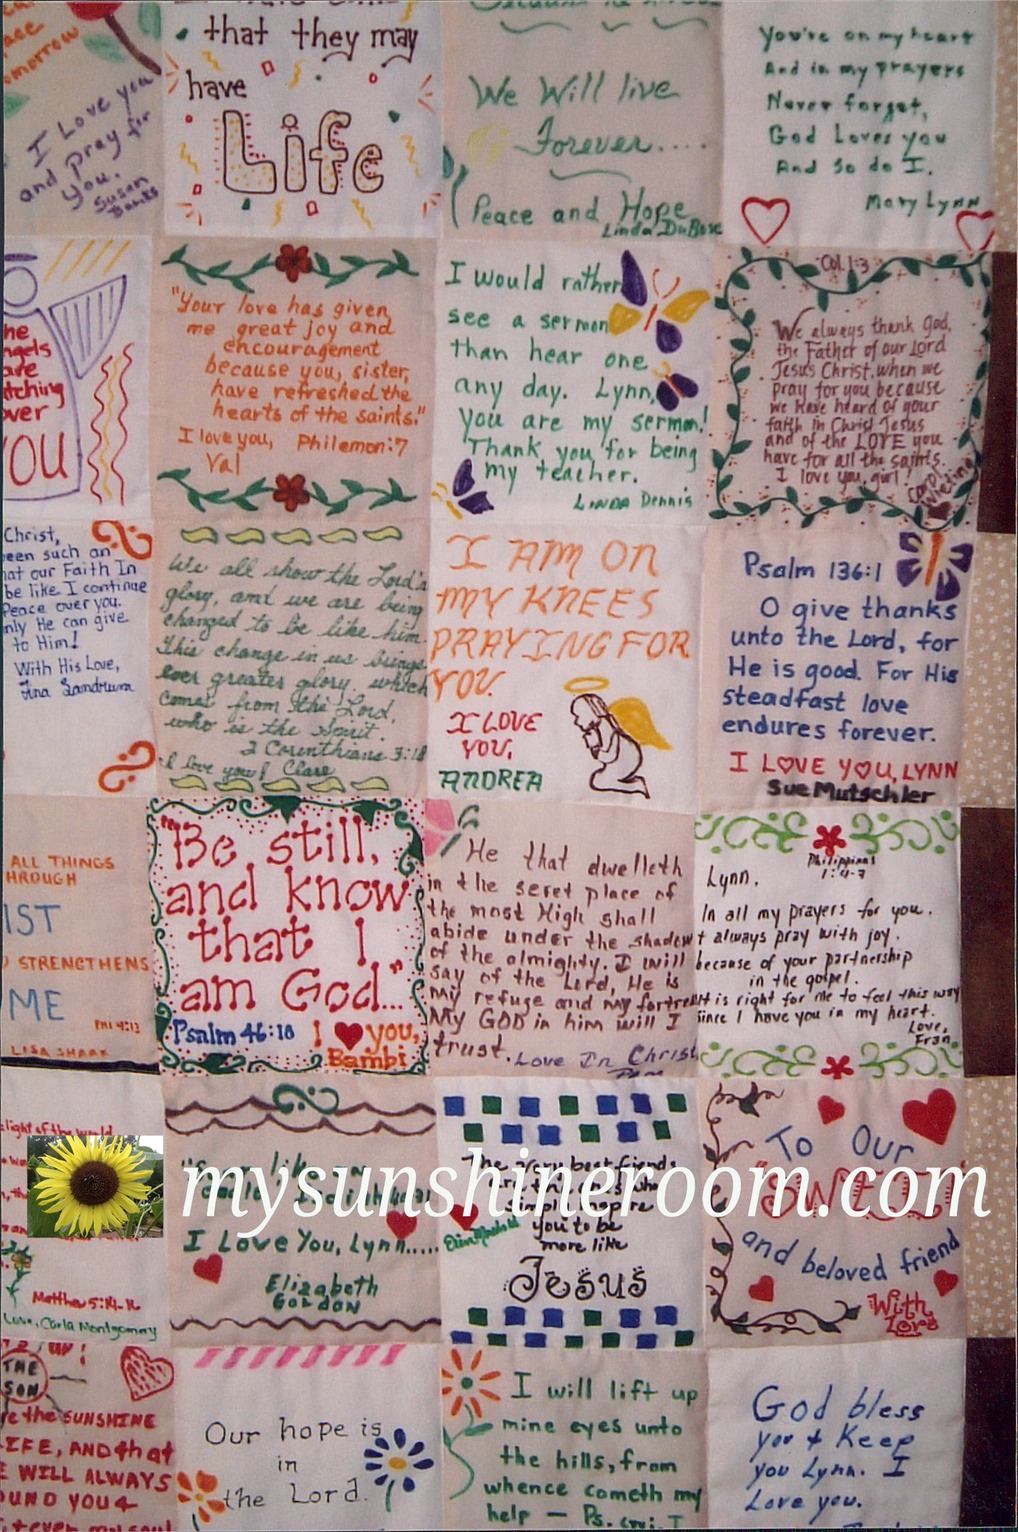 I Love you
and pray for
you.
Susan
Banks
that they may
have
Life
We Will live
Forever....
Peace and Hope
Linda DuBose
You're on my heart
And in my prayers
Never forget,
God Loves you
And so do I.
Mary Lynn
YOU
"Your love has given
me great joy and
encouragement
because you, sister,
have refreshed the
hearts of the saints."
I love you, Philemon:7
Val
I would rather
see a sermon
than hear one
any day. Lynn,
you are my sermon!
Thank you for being
my teacher.
Linda Dennis
Col. 1:3
We always thank God,
the Father of our Lord
Jesus Christ, when we
pray for you because
we have heard of your
faith in Christ Jesus
and of the LOVE you
have for all the saints.
I love you, girl!
Carol
Christ,
een such an
at our Faith In
be like I continue
Peace over you.
nly He can give
to Him!
With His Love,
Tina Landrum
We all show the Lord's
glory, and we are being
changed to be like him.
This change in us brings
ever greater glory, which
comes from the Lord,
who is the Spirit.
2 Corinthians 3:18
I love you! Clare
I AM ON
MY KNEES
PRAYING FOR
YOU.
I LOVE
YOU,
ANDREA
Psalm 136:1
O give thanks
unto the Lord, for
He is good. For His
steadfast love
endures forever.
I LOVE YOU, LYNN
Sue Mutschler
ALL THINGS
HROUGH
IST
STRENGTHENS
ME
PHI 4:13
LISA SHARK
"Be still,
and know
that I
am God..."
Psalm 46:10 I ♥ you,
Bambi
He that dwelleth
in the secret place of
the most High shall
abide under the shadow
of the almighty. I will
say of the Lord, He is
my refuge and my fortress
My GOD in him will I
trust. Love In Christ
Pam
Philippians
1:4-7
Lynn,
In all my prayers for you.
I always pray with joy.
because of your partnership
in the gospel.
It is right for me to feel this way
since I have you in my heart.
Love,
Fran
light of the world
Matthew 5:14-16
Love, Carla Montgomery
I Love You, Lynn.....
Elizabeth
Gordon
The very best friends
are the ones who
simply inspire
you to be
more like
Jesus
To Our
"SWEETIE"
and beloved friend
With
Love
mysunshineroom.com
THE
SON
re the SUNSHINE
LIFE, AND that
E WILL ALWAYS
OUND YOU &
Our hope is
in
the Lord.
I will lift up
mine eyes unto
the hills, from
whence cometh my
help — Ps.
God bless
you & Keep
you Lynn. I
Love you.